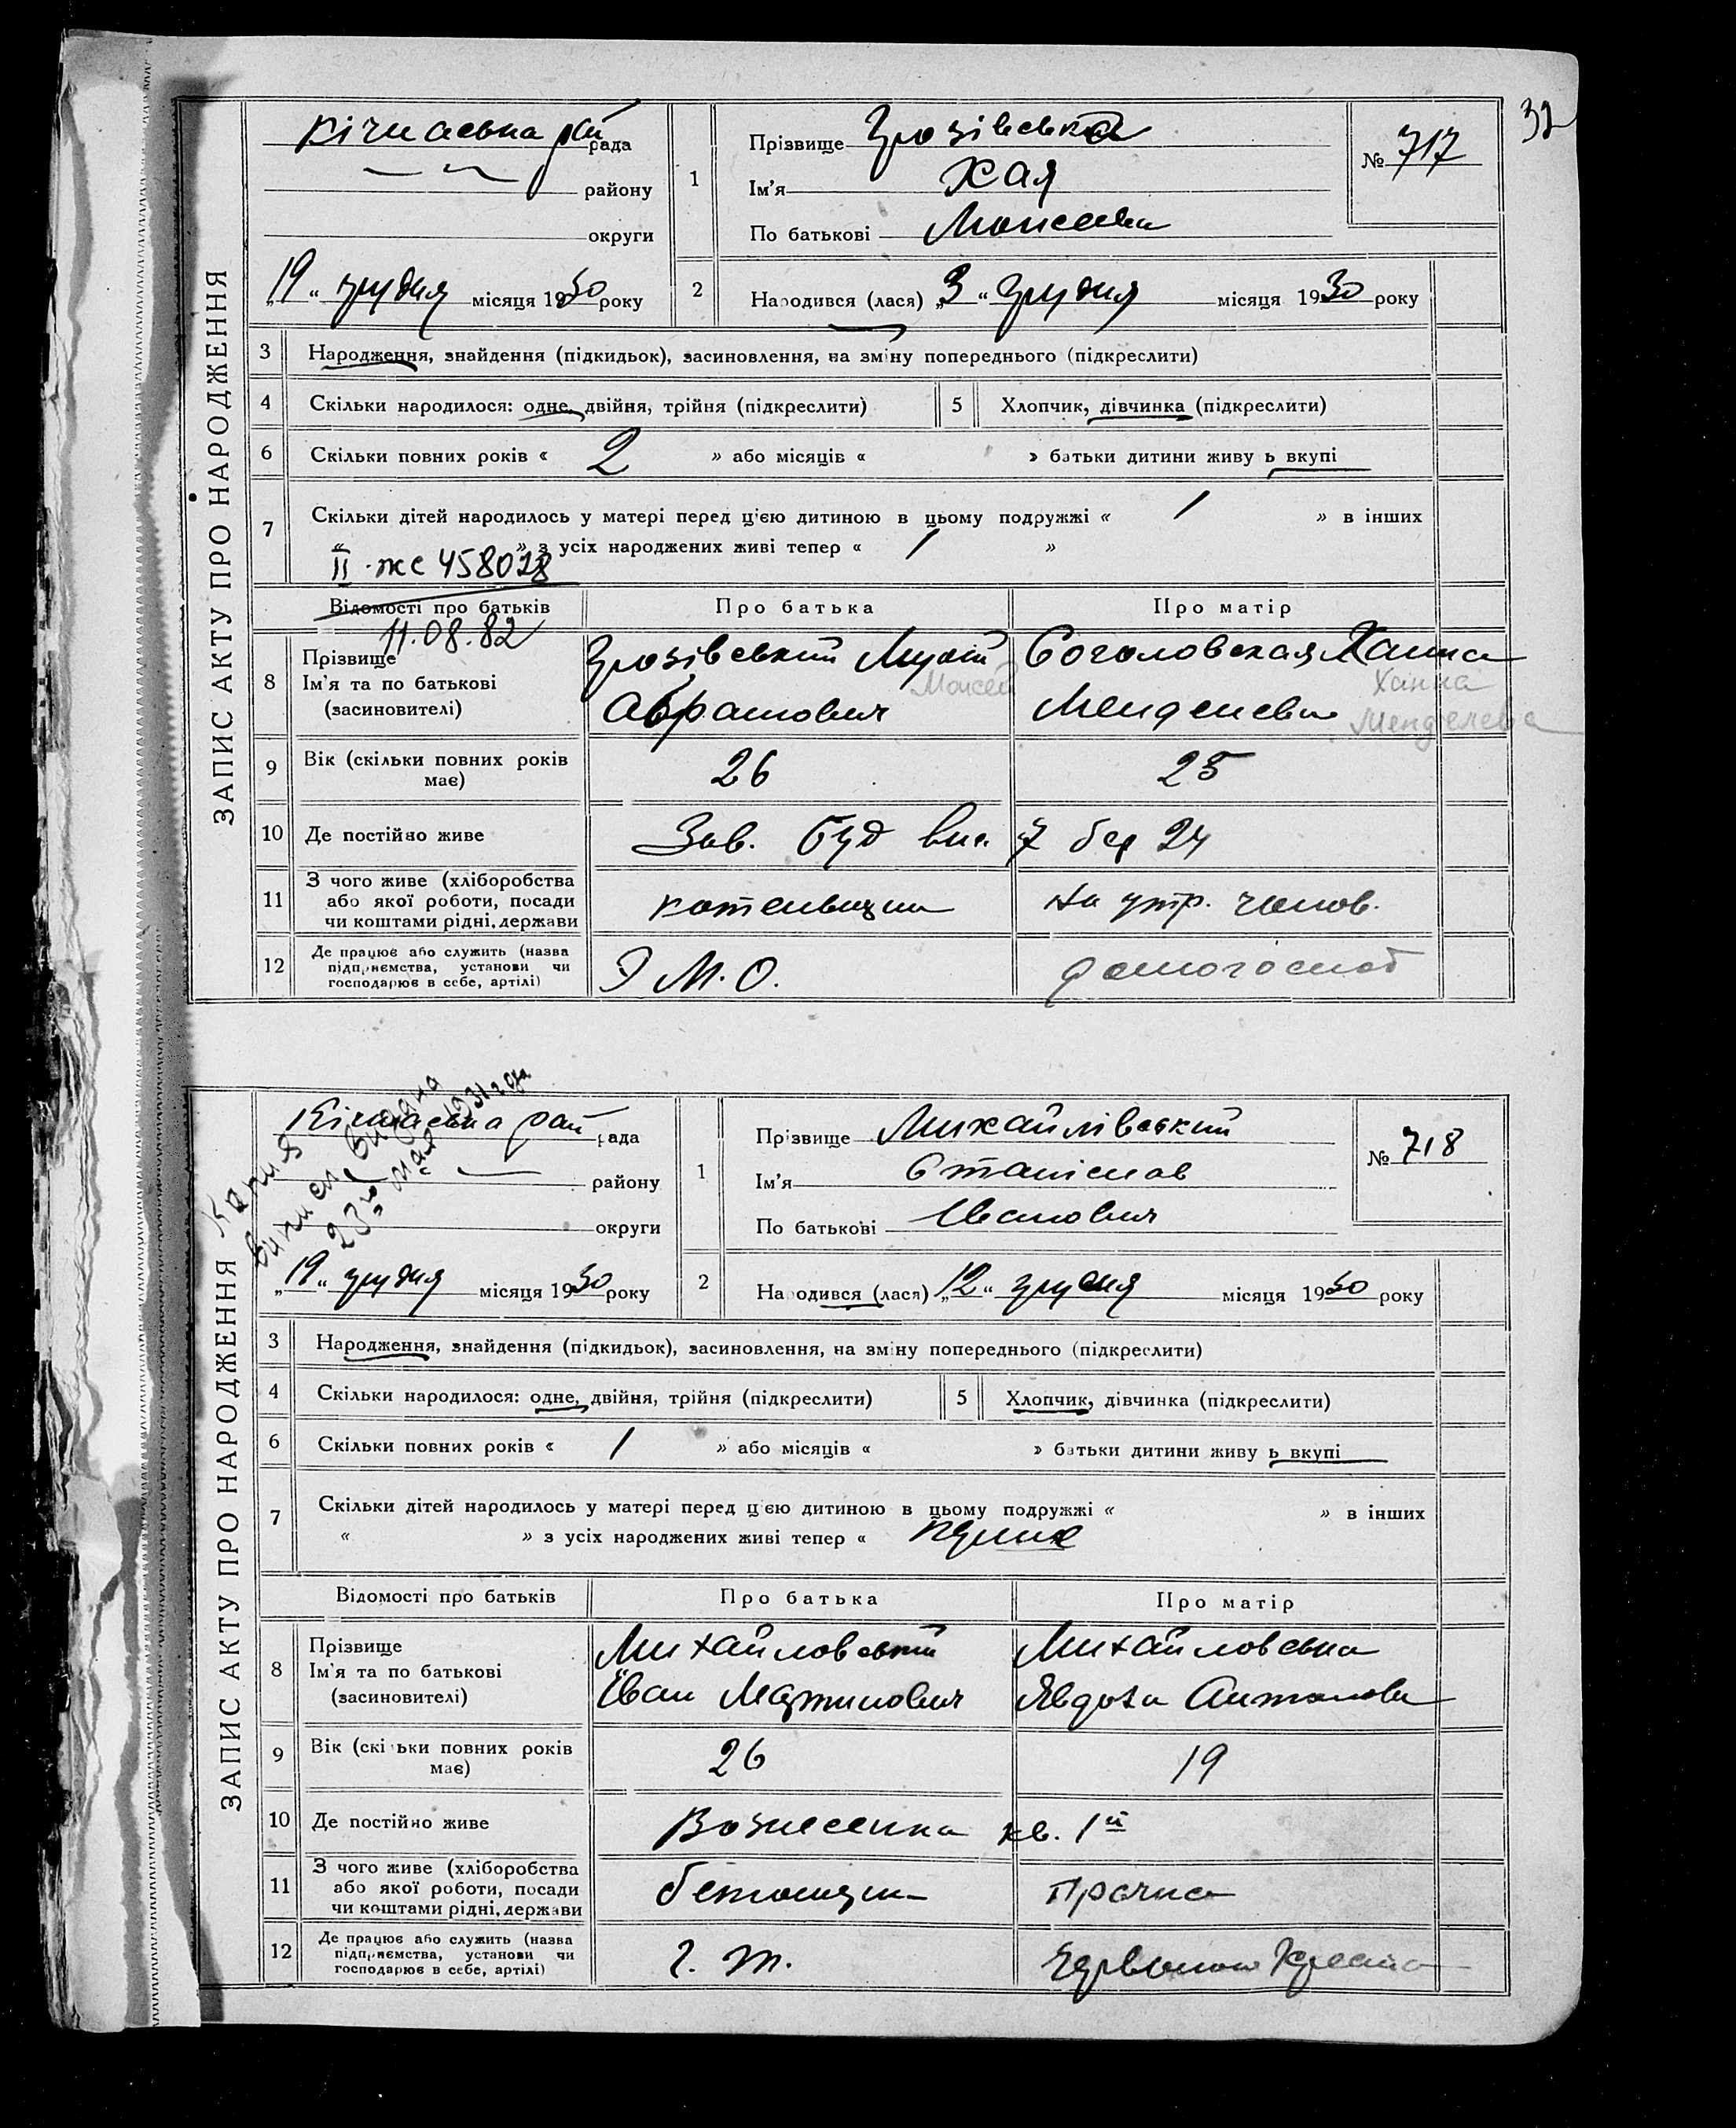 32
ЗАПИС АКТУ ПРО НАРОДЖЕННЯ
Кічкаська рай рада
району
округи
„19“ грудня місяця 1930 року
1
Прізвище Грозівська
Ім'я Хая
По батькові Мойсеевна
№ 717
2
Народився (лася) „3“ грудня місяця 1930 року
3 Народження, знайдення (підкидьок), засиновлення, на зміну попереднього (підкреслити)
4 Скільки народилося: одне, двійня, трійня (підкреслити) 5 Хлопчик, дівчинка (підкреслити)
6 Скільки повних років « 2 » або місяців « » батьки дитини живуть вкупі
7 Скільки дітей народилось у матері перед цією дитиною в цьому подружжі « 1 » в інших
« » з усіх народжених живі тепер « 1 »
II-же 458028
11.08.82
Відомості про батьків Про батька Про матір
8 Прізвище
Ім'я та по батькові
(засновителі)
Грозівський
Мойсей
Абрамович
Соголовская Ханна
Ханна
Менделевна
Менделевна
9 Вік (скільки повних років має) 26 25
10 Де постійно живе Зав. буд 7 бар 24
11 З чого живе (хліборобства
або якої роботи, посади
чи коштами рідні, держави
котельщик на утр. чолов.
12 Де працює або служить (назва
підприємства, установи чи
господарює в себе, артілі)
Э М. О. домогоспод
ЗАПИС АКТУ ПРО НАРОДЖЕННЯ
Кічкаська рай рада
району
округи
Копия
выписи выдана
23го мая 1931 года
„19“ грудня місяця 1930 року
1
Прізвище Михайлівський
Ім'я Станіслав
По батькові Іванович
№ 718
2
Народився (лася) „12“ грудня місяця 1930 року
3 Народження, знайдення (підкидьок), засиновлення, на зміну попереднього (підкреслити)
4 Скільки народилося: одне, двійня, трійня (підкреслити) 5 Хлопчик, дівчинка (підкреслити)
6 Скільки повних років « 1 » або місяців « » батьки дитини живуть вкупі
7 Скільки дітей народилось у матері перед цією дитиною в цьому подружжі « » в інших
« » з усіх народжених живі тепер «
Відомості про батьків Про батька Про матір
8 Прізвище
Ім'я та по батькові
(засиновителі)
Михайловський
Іван Мартинович
Михайловська
Явдоха Антоновна
9 Вік (скільки повних років має) 26 19
10 Де постійно живе Вознесенка кв. 1й
11 З чого живе (хліборобства
або якої роботи, посади
чи коштами рідні, держави
бетонщик Прачка
12 Де працює або служить (назва
підприємства, установи чи
господарює в себе, артілі)
Г. Т. Червоного Хреста